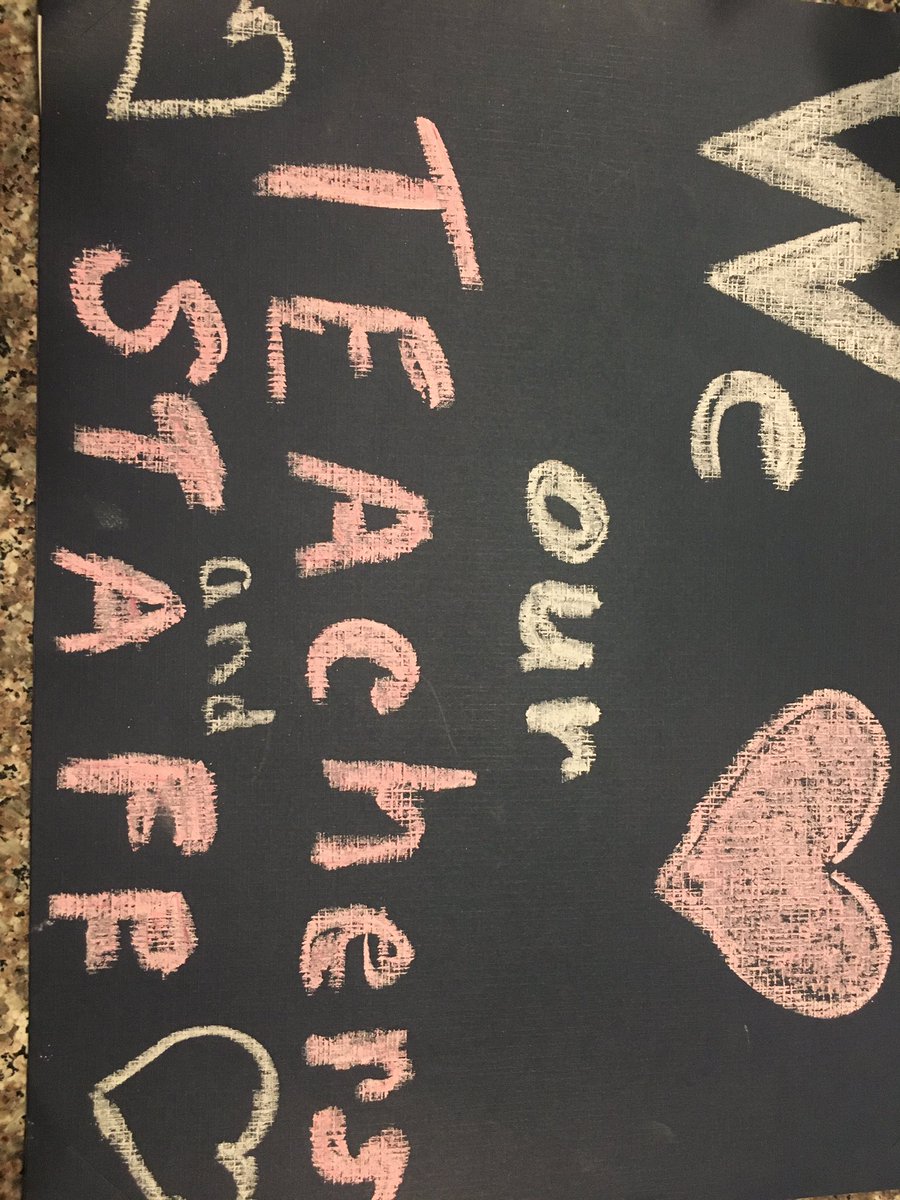 We
our
TEAchers
and
STAFF